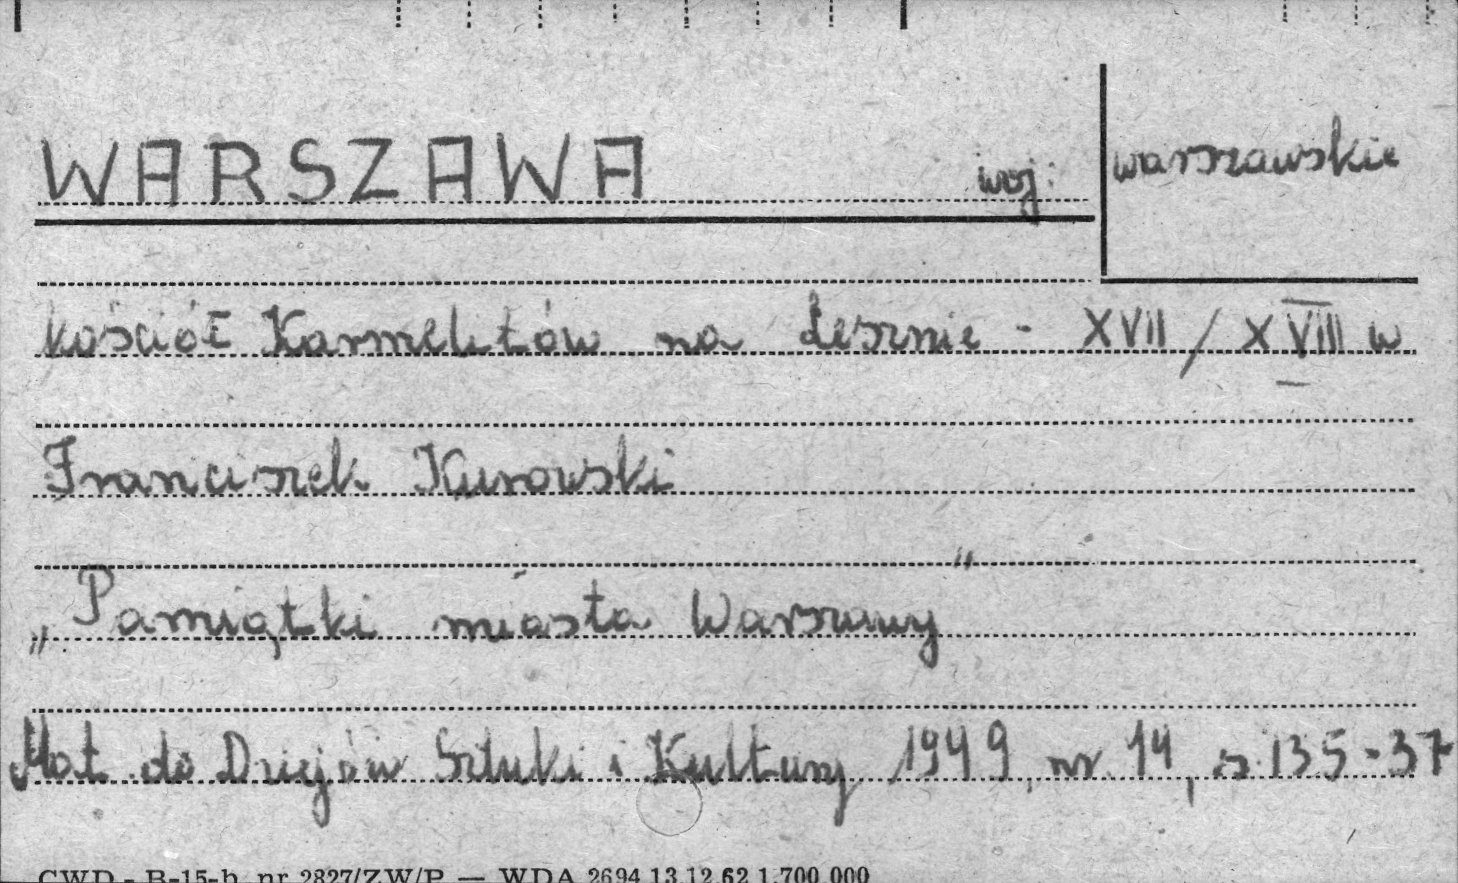 WARSZAWA woj: warszawskie
kościół Karmelitów na Lesznie - XVII / XVIII w
Franciszek Kurowski
„Pamiątki miasta Warszawy”
Mat. do Dziejów Sztuki i Kultury 1949, nr. 14, s. 135-37
CWD - B-15-b nr 2827/ZW/P — WDA 2694 13.12.62 1.700.000